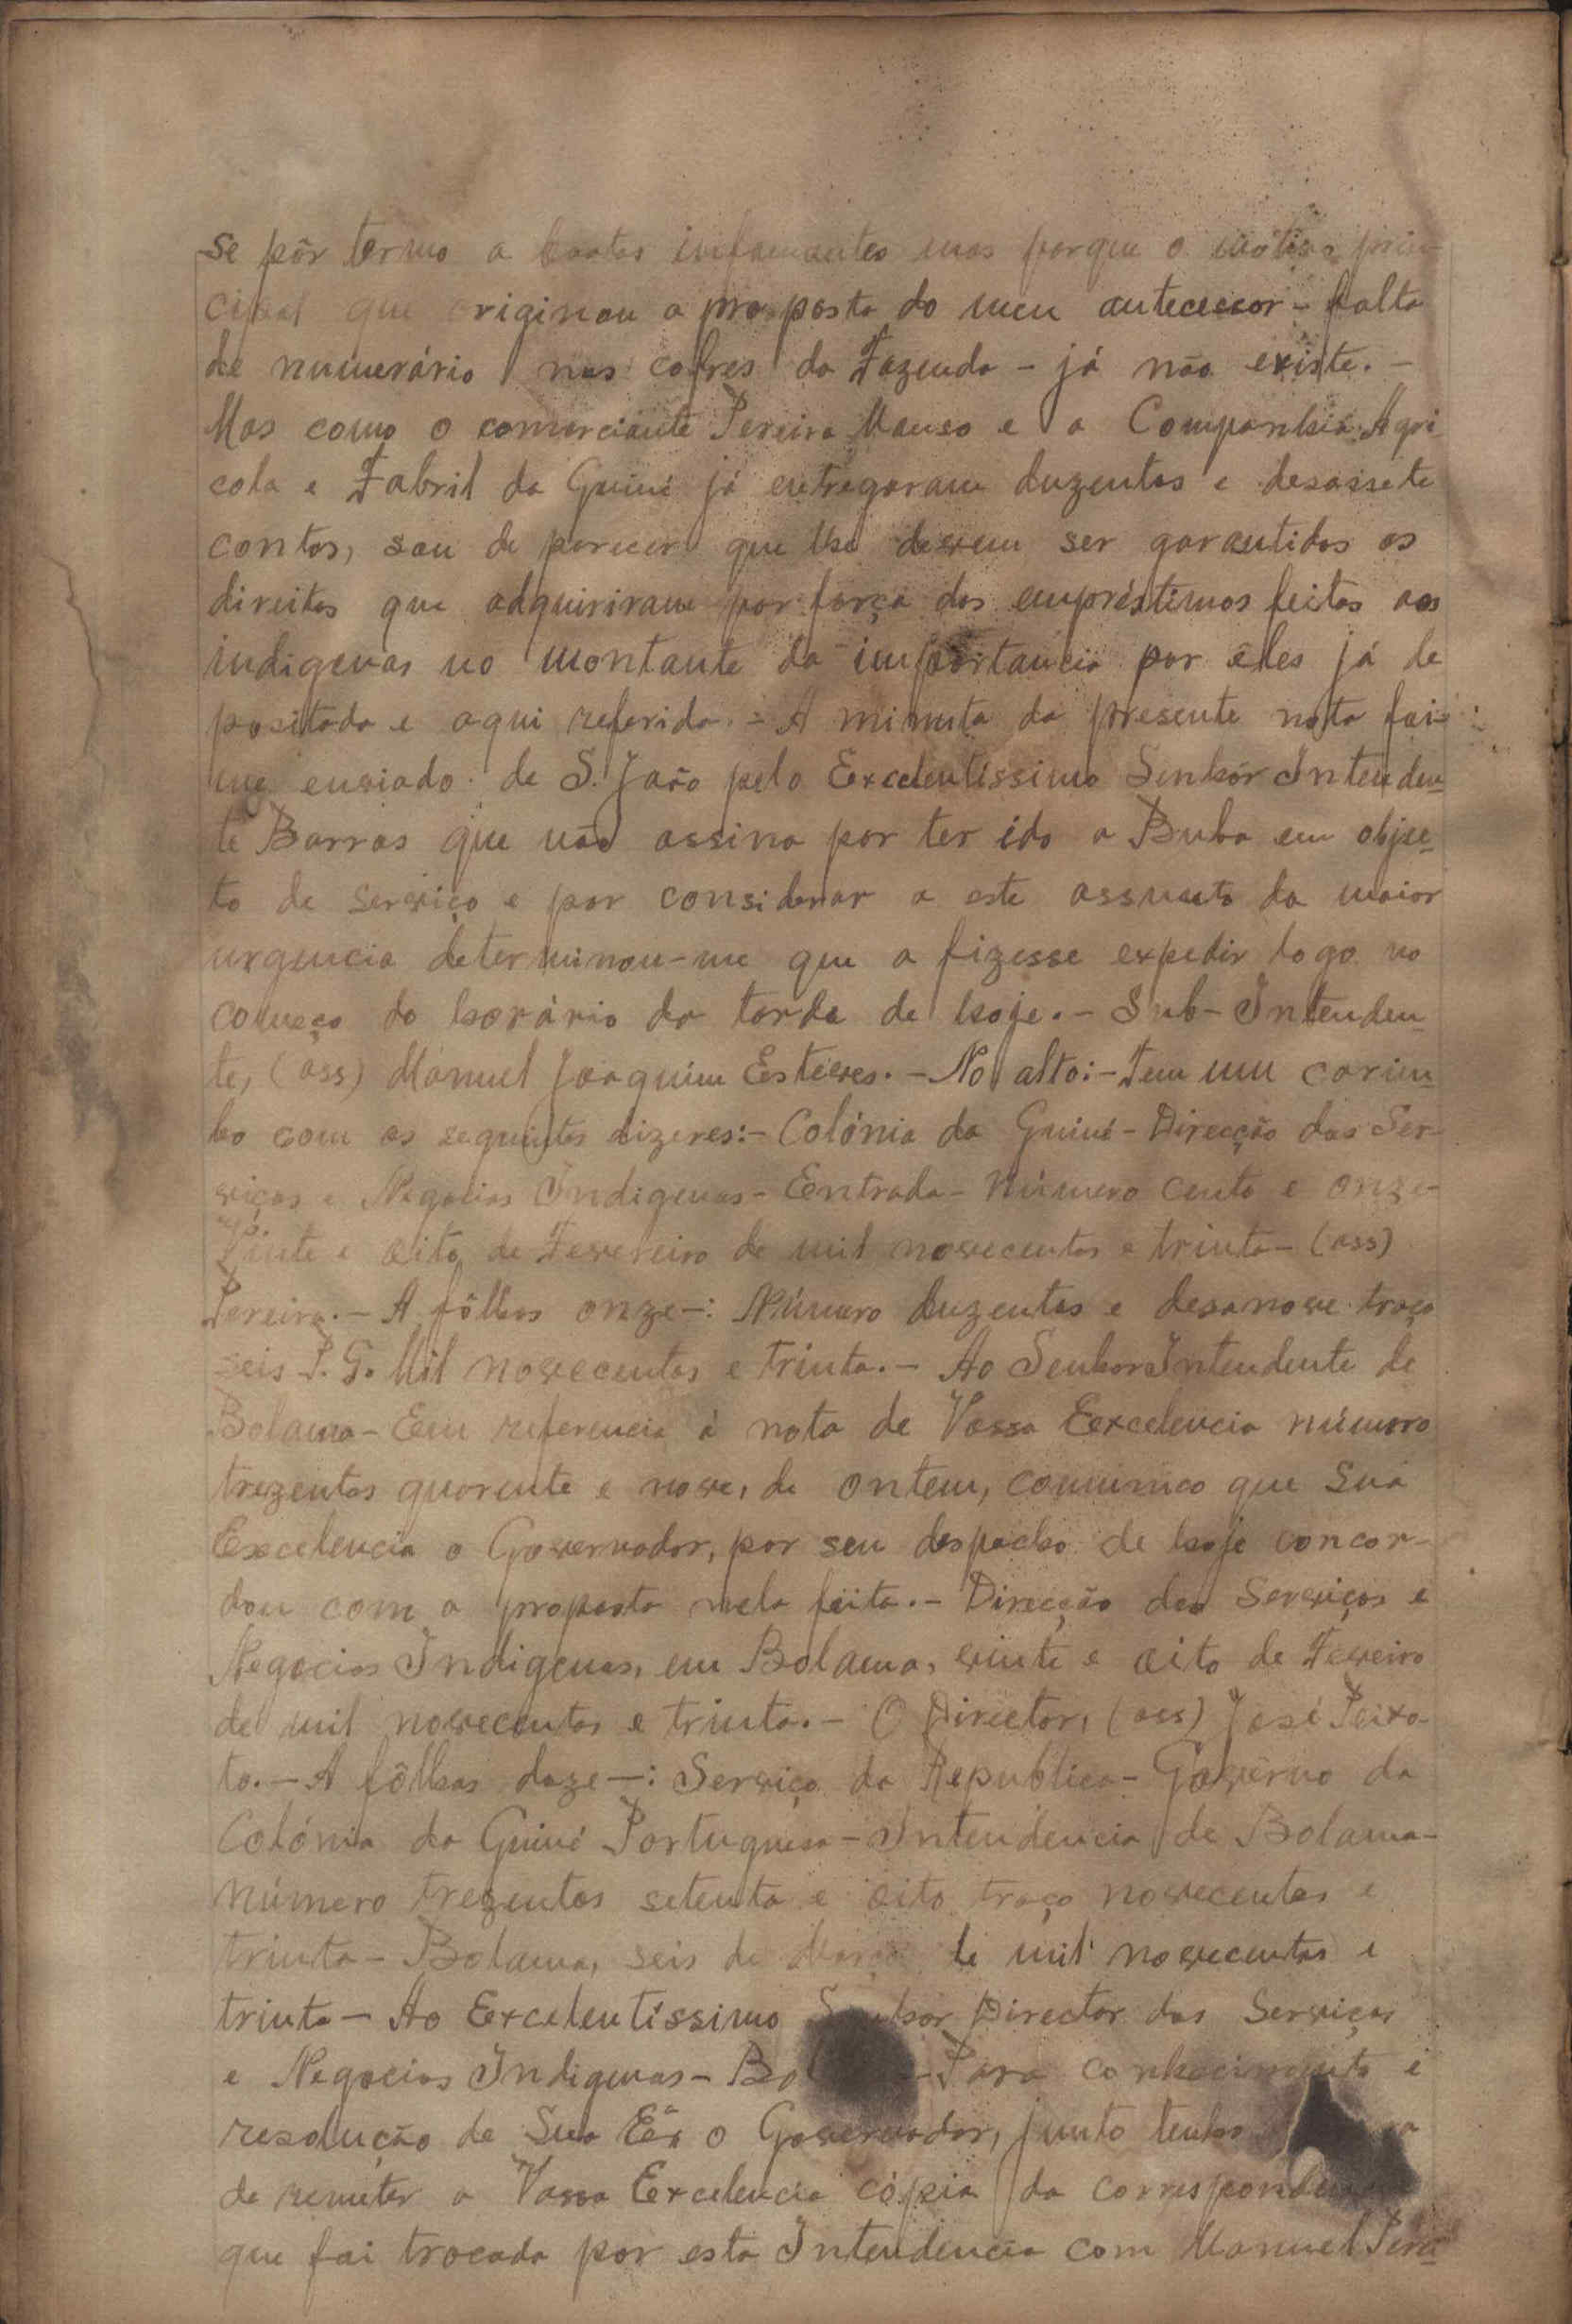 se pôr termo a boatos infamantes mas porque o motivo prin-
cipal que originou a proposta do meu antecessor - falta
de numerário nos cofres da Fazenda - já não existe. -
Mas como o comerciante Pereira Manso e a Companhia Agri
cola e Fabril da Guiné já entregaram duzentos e desassete
contos, sou de parecer que lhe devem ser garantidos os
direitos que adquiriram por força dos empréstimos feitos aos
indigenas no montante da importancia por êles já de
positada e aqui referida. - A minuta da presente nota foi-
me enviada de S. João pelo Excelentíssimo Senhôr Intenden-
te Barros que não assina por ter ido a Buba em obje-
to de serviço e por considerar a este assunto da maior
urgencia determinou-me que a fizesse expedir logo no
começo do horário da tarde de hoje. - Sub-Intenden-
te, (ass) Manuel Joaquim Esteves. - No alto: - Tem um carim-
bo com os seguintes dizeres: - Colónia da Guiné - Direcção dos Ser-
viços e Negocios Indigenas - Entrada - Número cento e onze -
Vinte e oito de Fevereiro de mil novecentos e trinta - (ass)
Pereira. - A fôlhas onze -: Número duzentos e desanove traço
seis P. G. Mil novecentos e trinta. - Ao Senhor Intendente de
Bolama - Em referencia á nota de Vossa Excelencia número
trezentos quarente e nove, de ontem, comunico que Sua
Excelencia o Governador, por seu despacho de hoje concor-
dou com a proposta nela feita. - Direcção dos Serviços e
Negocios Indigenas, em Bolama, vinte e oito de Feveiro
de mil novecentos e trinta. - O Director, (ass) José Peixo-
to. - A fôlhas doze -: Serviço da Republica - Govêrno da
Colónia da Guiné Portuguesa - Intendencia de Bolama -
número trezentos setenta e oito traço novecentos e
trinta - Bolama, seis de Março de mil novecentos e
trinta - Ao Excelentíssimo Senhor Director dos Serviços
e Negocios Indigenas - Bol - Para conhecimento e
resolução de Sua Exª o Governador, junto tenho
de remeter a Vossa Excelencia cópia da correspondencia
que foi trocada por esta Intendencia com Manuel Perei-